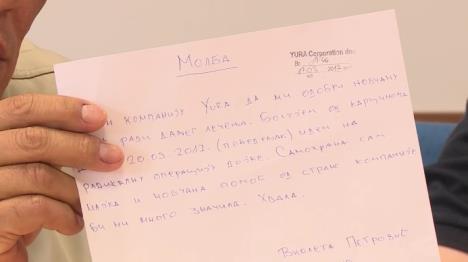 МОЛБА
YURA Corporation doo
КОМПАНИЈУ YURA ДА МИ ОДОБРИ НОВЧАНУ
РАДИ ДАЉЕГ ЛЕЧЕЊА. БОЛУЈЕМ ОД КАРЦИНОМА
20.03.2017. (ПОНЕДЕЉАК) ИДЕМ НА
РАДИКАЛНУ ОПЕРАЦИЈУ ДОЈКЕ. САМОХРАНА САМ
МАЈКА И НОВЧАНА ПОМОЋ ОД СТРАНЕ КОМПАНИЈЕ
БИ МИ МНОГО ЗНАЧИЛА. ХВАЛА.
ВИОЛЕТА ПЕТРОВИЋ